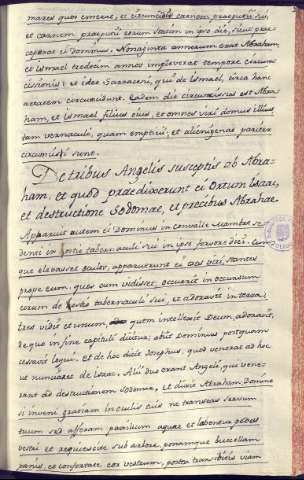 mares quos emerat, et circumcidit carnem praeputii sui,
et carnem praeputii eorum statim in ipso die, sicut prae-
ceperat ei Dominus. Nonaginta annorum erat Abraham,
et Ismael tredecim annos impleverat tempore circum-
cisionis: et ideo Sarraceni, qui de Ismael, circa hanc
aetatem circumcidunt. Eadem die circumcisus est Abra-
ham, et Ismael filius eius, et omnes viri domus illius
tam vernaculi, quam emptitii, et alienigenae pariter
circumcisi sunt.
De tribus Angelis susceptis ab Abra-
ham, et quod praedixerunt ei Ortum Isaac,
et destructione Sodomae, et precibus Abrahae.
Apparuit autem ei Dominus in convalle Mambre se-
denti in ostio tabernaculi sui in ipso fervore diei. Cum-
que elevasset oculos, apparuerunt ei tres viri, stantes
prope eum, quos cum vidisset, occurrit in occursum
eorum de ostio tabernaculi sui, et adoravit in terra;
tres vidit et unum, quem intellexit Deum, adoravit,
de quo in fine capituli dicitur; abiit Dominus postquam
cessavit loqui, et de hoc dicit Josephus, quod venerat ad hoc
ut nunciaret de Isaac. Alii duo erant Angeli, qui vene-
rant ad destructionem Sodomae, et dixit Abraham: Domine
si inveni gratiam in oculis tuis ne transeas servum
tuum sed afferam pauxillum aquae et laventur pedes
vestri et requiescite sub arbore, ponamque buccellam
panis, et confortate cor vestrum, postea transibitis viam